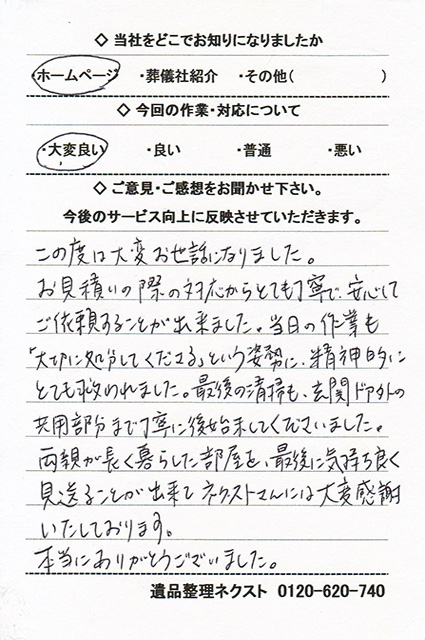 ◇ 当社をどこでお知りになりましたか
・ホームページ ・葬儀社紹介 ・その他( )
◇ 今回の作業・対応について
・大変良い ・良い ・普通 ・悪い
◇ ご意見・ご感想をお聞かせ下さい。
今後のサービス向上に反映させていただきます。
この度は大変お世話になりました。
お見積りの際の対応からとても丁寧で、安心して
ご依頼することが出来ました。当日の作業も
「大切に処分してくださる」という姿勢に、精神的に
とても救われました。最後の清掃も、玄関ドア外の
共用部分まで丁寧に後始末してくださいました。
両親が長く暮らした部屋を、最後に気持ち良く
見送ることが出来て ネクストさんには大変感謝
いたしております。
本当にありがとうございました。
遺品整理ネクスト 0120-620-740